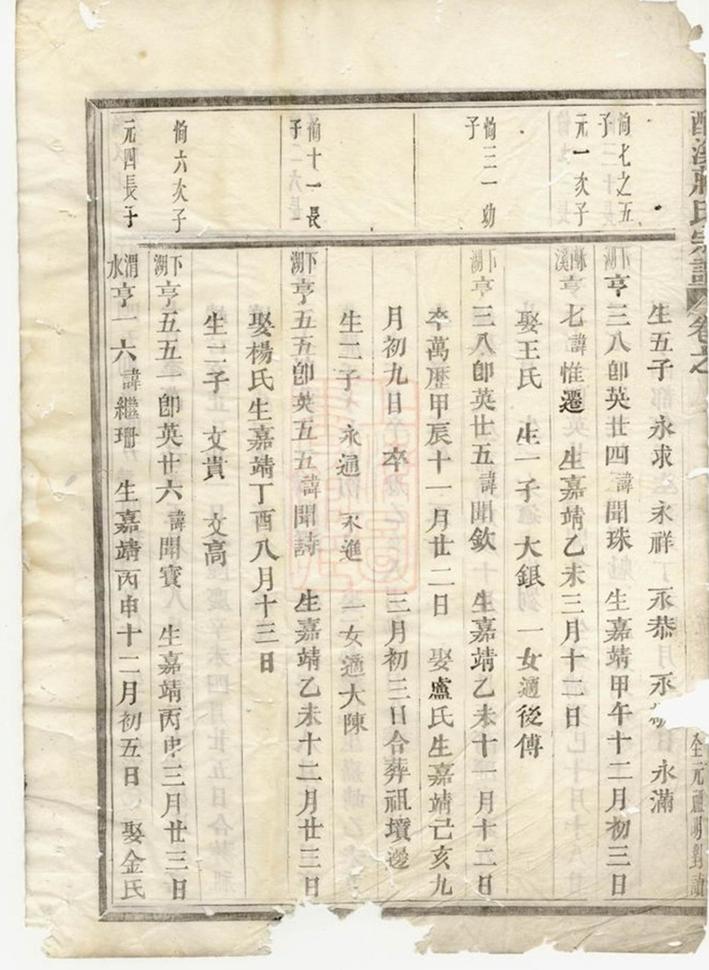 溪蔣氏宗譜 卷之
全元 明對讀
生五子 永求 永祥 永恭 永 永滿
恂七之五子
下湖 亨三八卽英廿四諱聞珠 生嘉靖甲午十二月初三日
元一次子
亨七諱惟遷 生嘉靖乙未三月十二日
娶王氏 生一子 大銀 一女適後傅
恂三一幼子
下湖 亨三八卽英廿五諱聞欽 生嘉靖乙未十一月十二日
卒萬歷甲辰十一月廿二日 娶盧氏生嘉靖己亥九
月初九日 卒 三月初三日合葬祖墳邊
生二子 永通 永進 一女適大陳
恂十一長子
下湖 亨五五卽英五五諱聞詩 生嘉靖乙未十二月廿三日
娶楊氏生嘉靖丁酉八月十三日
生二子 文貴 文高
恂六次子
下湖 亨五五一卽英廿六諱聞寶 生嘉靖丙申三月廿三日
元四長子
渭水 亨一六諱繼珊 生嘉靖丙申十二月初五日 娶金氏